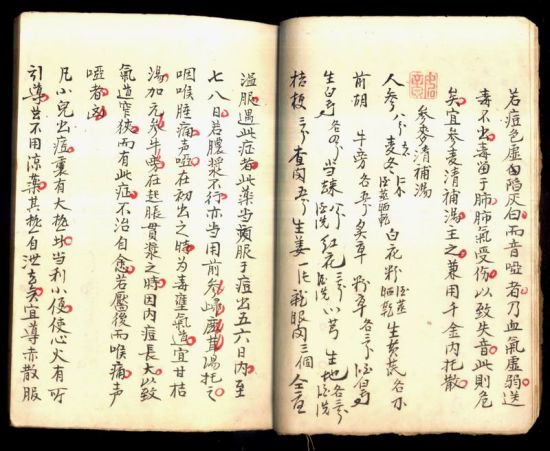 若痘色虛白陷灰白而音啞者乃血氣虛弱送
毒不出毒留于肺肺氣受傷以致失音此則危
矣宜參麥清補湯主之兼用千金內托散
參麥清補湯
人參 麥冬 白花粉 生黃芪
前胡 牛旁 各 炙草 粉草 各 白芍
生白芍 當歸 酒洗 紅花 三分 酒洗 川芎 生地 各 酒洗
桔梗 三分 查肉 五分 生姜 一片 龍眼肉 三個 全煎
溫服遇此症者此藥當頻服于痘出五六日內至
七八日若膿漿不行亦當用前參歸鹿茸湯托之
咽喉腫痛声啞在初出之時為毒壅氣道宜甘桔
湯加元參牛旁在起脹貫漿之時因內痘長大以致
氣道窄狹而有此症不治自愈若靨後而喉痛声
啞者凶
凡小兒出痘裏有大熱此當利小便使心火有所
引導 不用涼藥其熱自泄 宜導赤散服